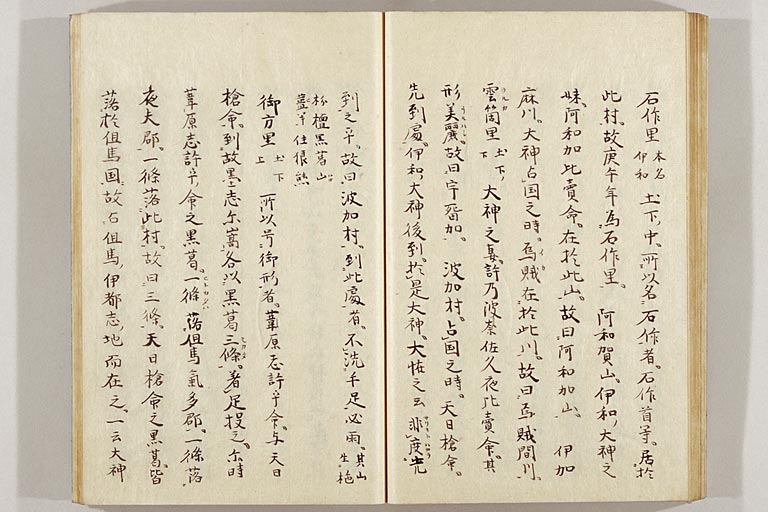 石作里 本名 伊和 土下ゝ中 所以名石作者 石作首等 居於
此村 故庚午年為石作里 阿和賀山 伊和大神之
妹 阿和加比賣命 在於此山 故曰阿和加山 伊加
麻川 大神占国之時 烏賊在於此川 故曰烏賊間川
雲箇里 土下ゝ 大神之妻 許乃波奈佐久夜比賣命 其
形美麗 故曰宇留加 波加村 占国之時 天日槍命
先到處 伊和大神後到 於是大神大恠之云 非度先
到之乎 故曰波加村 到此處者 不洗手足必雨 其山 生
枌檀黒葛山 等 住狼熊
御方里 土下上 所以号御形者 葦原志許乎命 与天日
槍命 到故黒土志尓嵩 各以黒葛三條 著足投之 尓時
葦原志許乎命之黒葛 一條落但馬氣多郡 一條落
夜夫郡 一條落此村 故曰三條 天日槍命之黒葛 皆
落於但馬国 故占但馬 伊都志地而在之 一云 大神